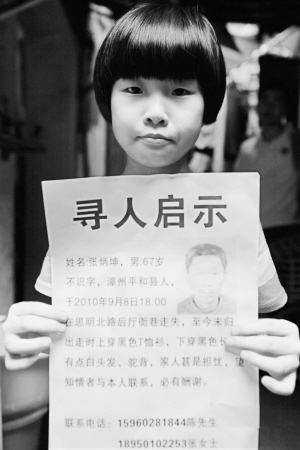 寻人启示
姓名:张炳坤，男:67岁
不识字，漳州平和县人，
于2010年9月8日18:00
在思明北路后厅衙巷走失，至今未归
出走时上穿黑色T恤衫，下穿黑色长
有点白头发、驼背，家人甚是担忧，望
知情者与本人联系，必有酬谢。
联系电话：15960281844陈先生
18950102253张女士